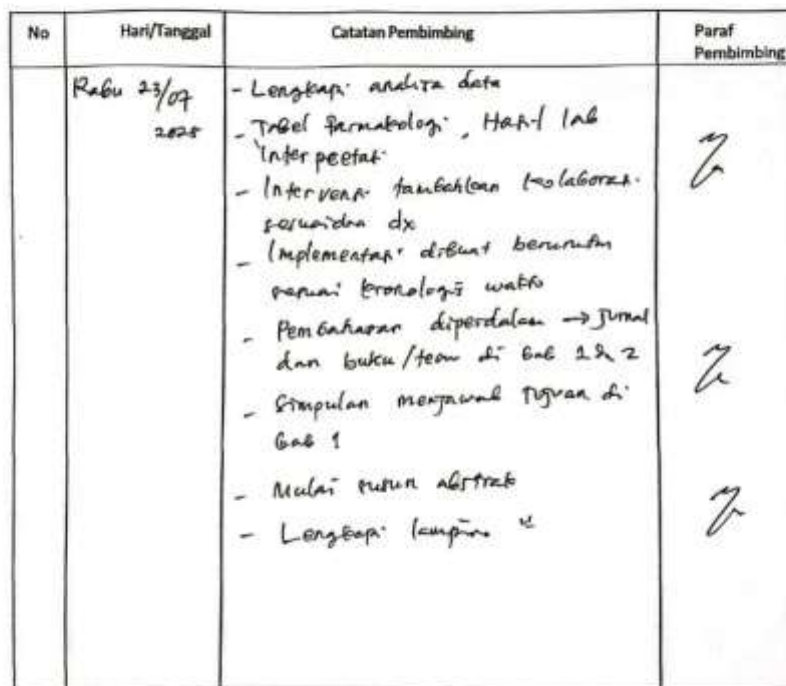 No
Hari/Tanggal
Catatan Pembimbing
Paraf
Pembimbing
Rabu 23/07
2025
- Lengkapi analisa data
- Tabel farmakologi, Hasil lab
interpretasi
- Intervensi tambahkan kolaborasi
sesuaidan dx
- Implementasi dibuat berurutan
sesuai kronologis waktu
- Pembahasan diperdalam → Jurnal
dan buku/teori di bab 1 & 2
- Simpulan menjawab tujuan di
bab 1
- Mulai susun abstrak
- Lengkapi lampiran